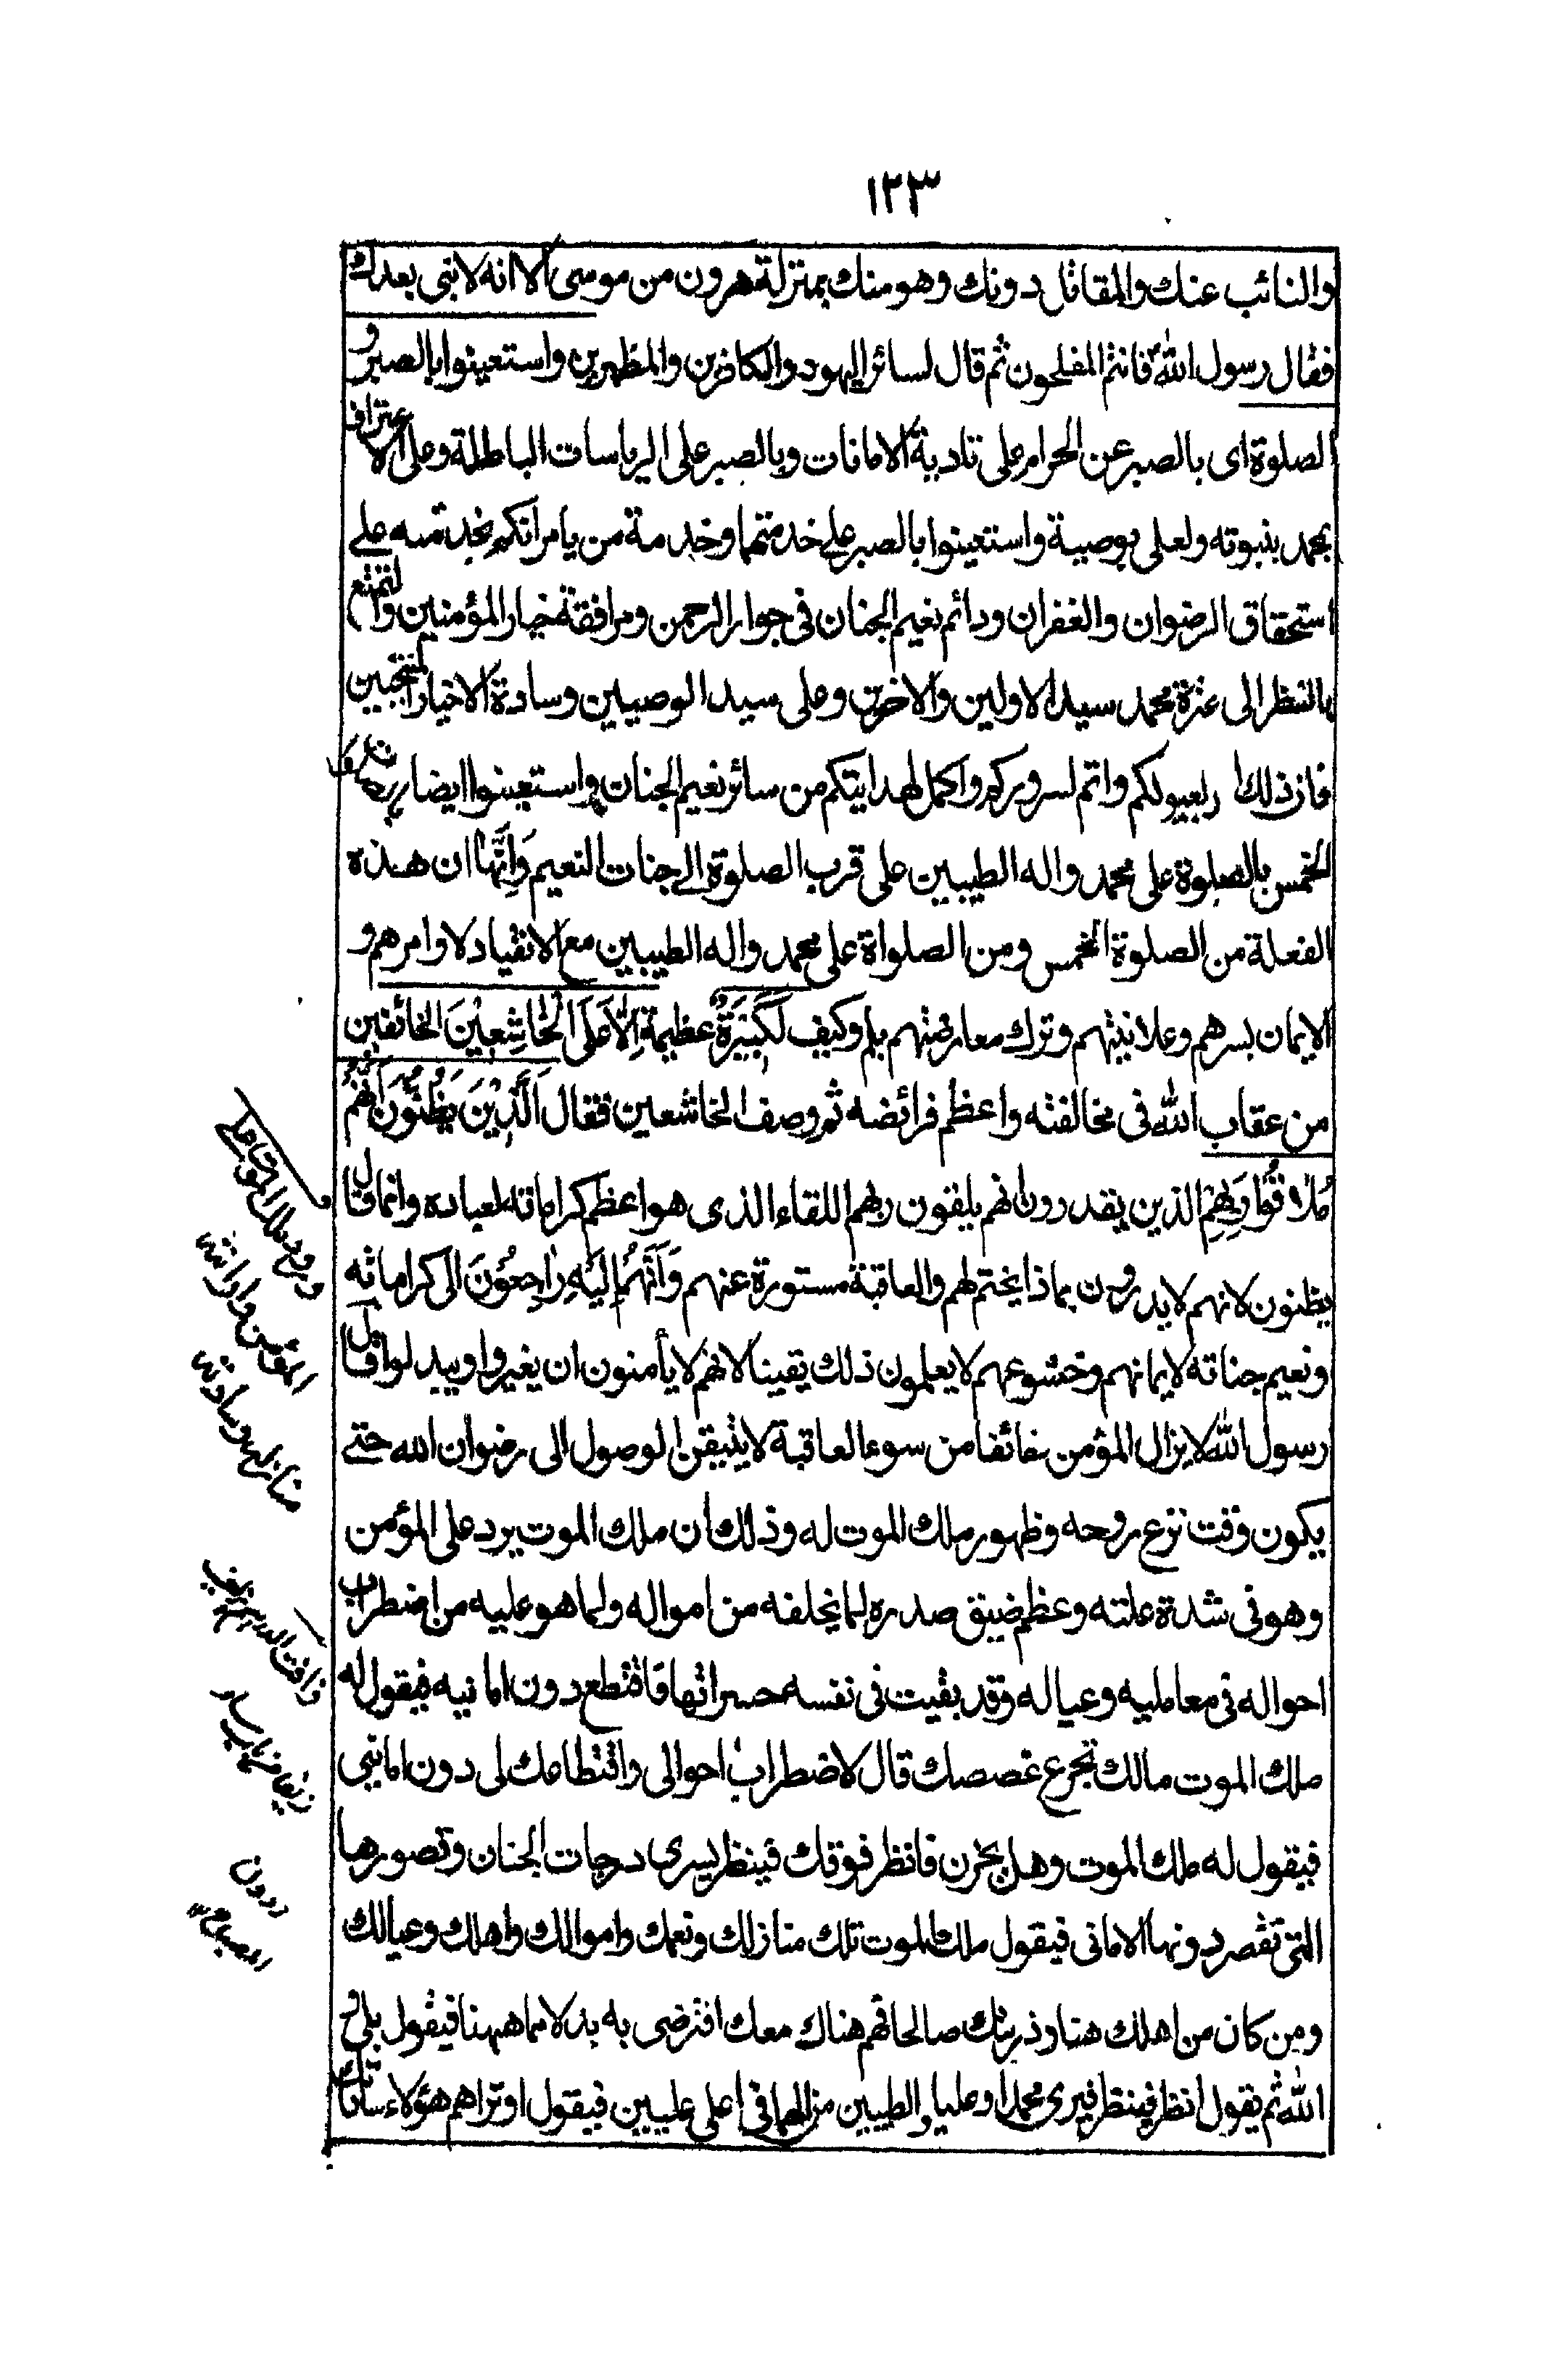 ١٢٣
والنائب عنك والمقاتل دونك وهو منك بمنزلة هرون من موسى الا انه لا نبى بعدك
فقال رسول الله فانتم المفلحون ثم قال لسائر اليهود والكافرين والمظهرين واستعينوا بالصبر و
الصلوة اى بالصبر عن الحرام على تادية الامانات وبالصبر على الرياسات الباطلة وعلى الاعتراف
بمحمد بنبوته ولعلى بوصيية واستعينوا بالصبر على خدمتهما وخدمة من يامرانكم بخدمته على
استحقاق الرضوان والغفران ودائم نعيم الجنان فى جوار الرحمن ومرافقة خيار المؤمنين والتمتع
بالنظر الى عترة محمد سيد الاولين والاخرين وعلى سيد الوصيين وسادة الاخيار المنتجبين
فان ذلك لعيونكم واتم لسروركم واكمل لهدايتكم من سائر نعيم الجنان واستعينوا ايضا
الخمس بالصلوة على محمد واله الطيبين على قرب الصلوة الى جنات النعيم وَاِنَّها ان هذه
الفعلة من الصلوة الخمس ومن الصلواة على محمد واله الطيبين مع الانقياد لاوامرهم و
الايمان بسرهم وعلانيتهم وترك معارضتهم بلم وكيف لَكَبيرَةٌ عظيمة اِلّا عَلَى الْخاشِعينَ الخائفين
من عقاب الله فى مخالفته واعظم فرائضه ثم وصف الخاشعين فقال اَلَّذينَ يَظُنُّونَ اَنَّهُمْ
مُلاقُوا رَبِّهِمْ الذين يقدرون انهم يلقون ربهم اللقاء الذى هو اعظم كراماته لعباده وانما قال
يظنون لانهم لا يدرون بماذا يختم لهم والعاقبة مستورة عنهم وَاَنَّهُمْ اِلَيْهِ راجِعُونَ الى كراماته
ونعيم جناته لايمانهم وخشوعهم لا يعلمون ذلك يقينا لانهم لا يأمنون ان يغيروا ويبدلوا قال
رسول الله لا يزال المؤمن خائفا من سوء العاقبة لا يتيقن الوصول الى رضوان الله حتى
يكون وقت نزع روحه وظهور ملك الموت له وذلك ان ملك الموت يرد على المؤمن
وهو فى شدة علته وعظم ضيق صدره لما يخلفه من امواله ولما هو عليه من اضطراب
احواله فى معامليه وعياله وقد بقيت فى نفسه حسراتها واقتطع دون امانيه فيقول له
ملك الموت مالك تجرع غصصك قال لاضطراب احوالى واقتطاعك لى دون امانيى
فيقول له ملك الموت وهل يحزن فانظر فوقك فينظر يسرى درجات الجنان وقصورها
التى تقصر دونها الامانى فيقول ملك الموت تلك منازلك ونعمك واموالك واهلك وعيالك
ومن كان من اهلك هنا وذريتك صالحا فهم هناك معك افترضى به بدلا مما ههنا فيقول بلى و
الله ثم يقول انظر فينظر فيرى محمدا وعليا والطيبين من الهما فى اعلى عليين فيقول او تراهم هؤلاء ساداتك
ورود ملك الموت على
المؤمن وارائته
منازله وساداته